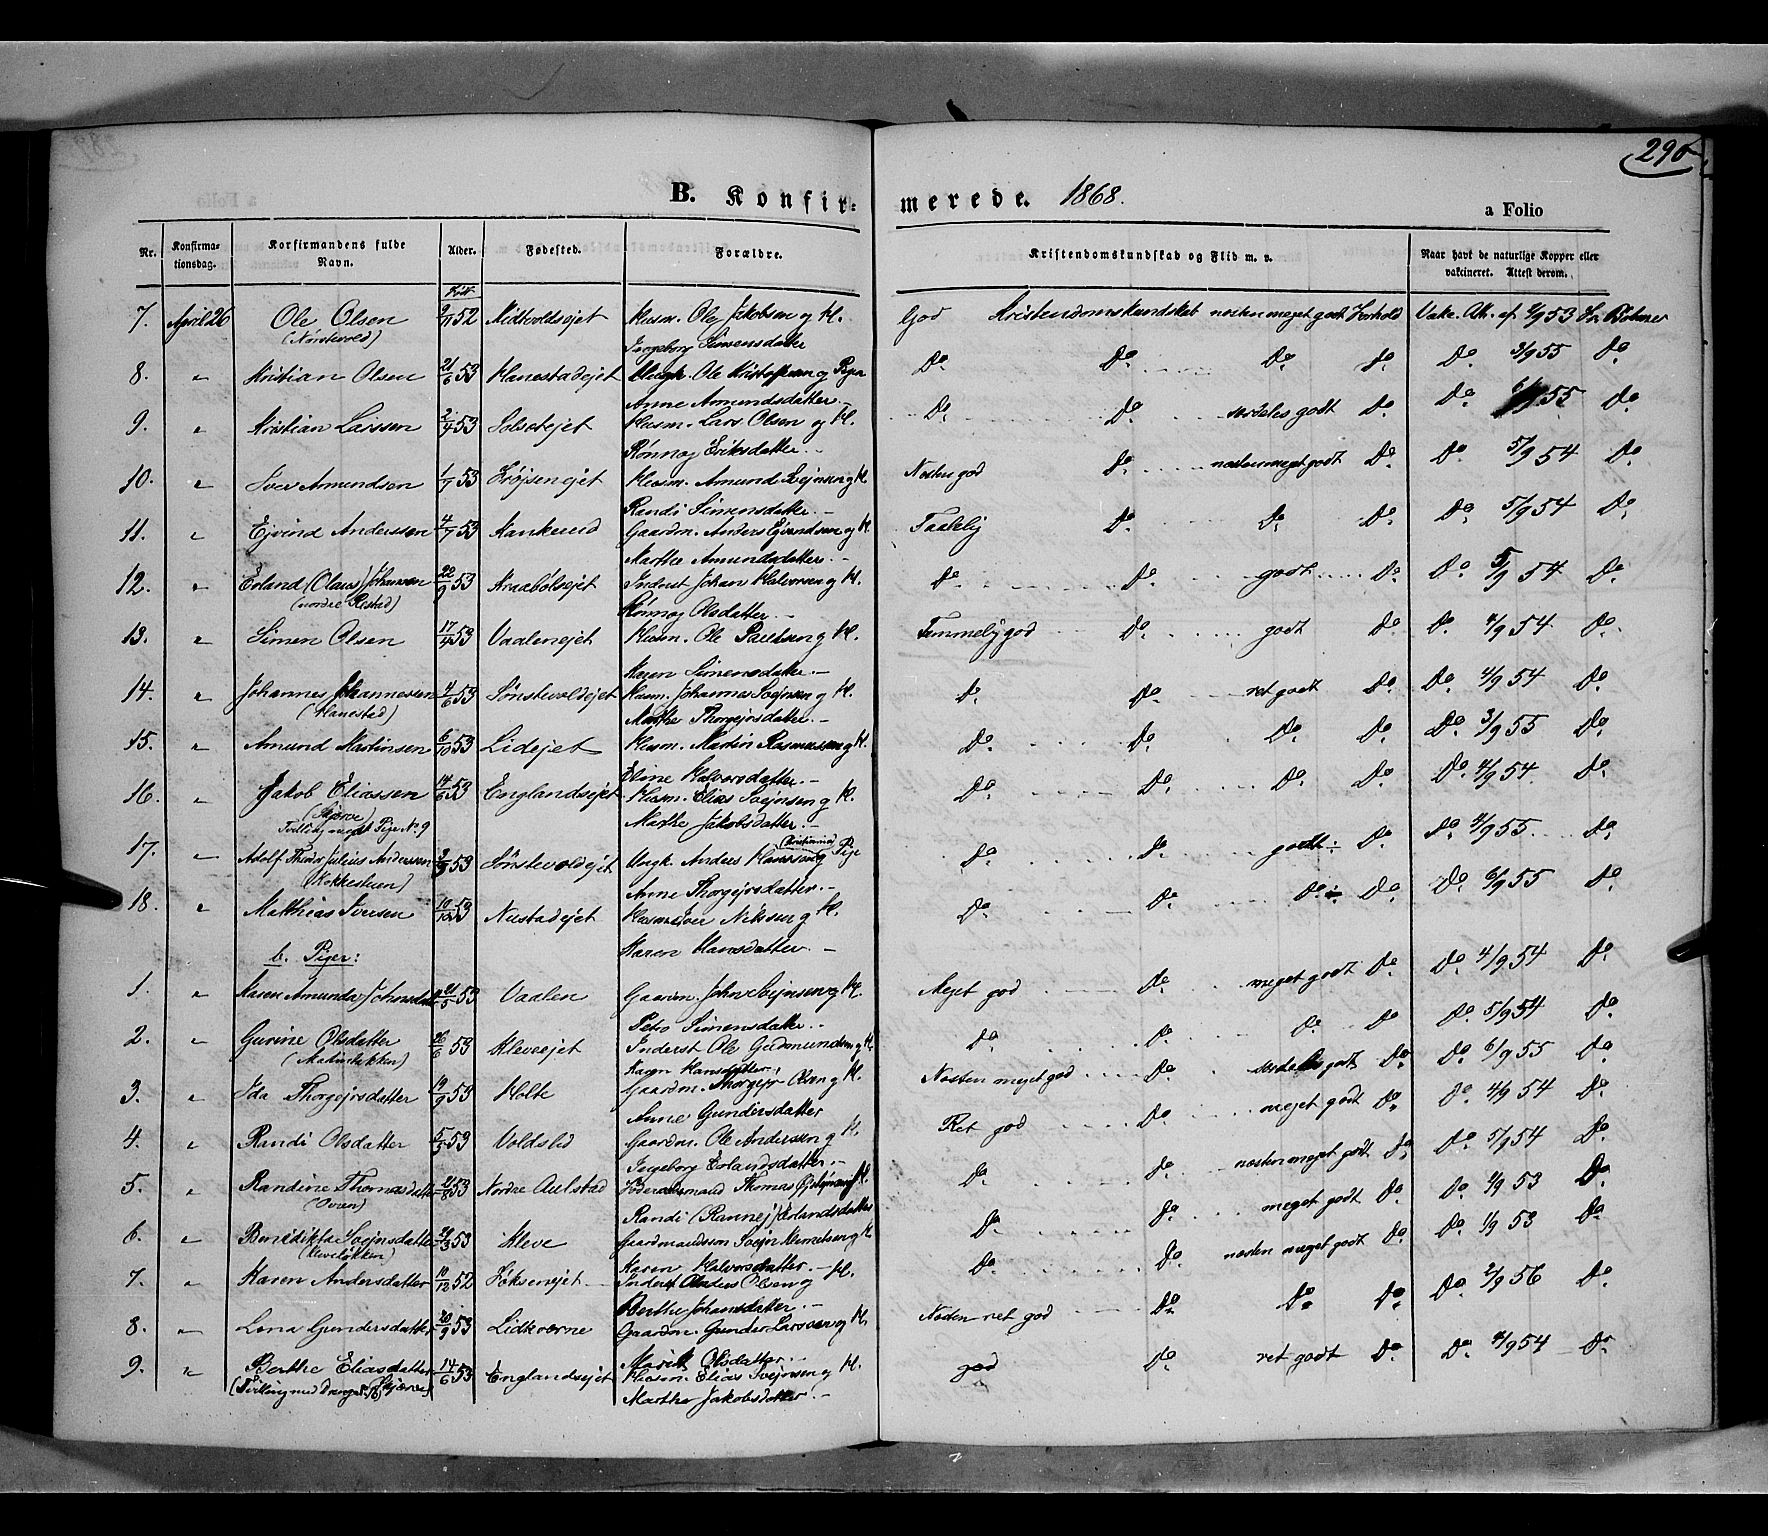 290
B. Konfir= merede. 1868.
a Folio
Nr. Konfirma= tionsdag. Konfirmandens fulde Navn. Alder. Fødested. Forældre. Kristendomskundskab og Flid m. v. Naar havt de naturlige Kopper eller vakcineret. Attest derom.
Født
7. April 26 Ole Olsen 52 Midtvoldsejet Husm. Ole Jakobsen og K. God Kristendomskundskab næsten meget godt Forhold Vakc. At. af 53
(Nørstevold) Ingeborg Simensdatter
8. " Kristian Olsen 21/6 53 Hanestadejet Ungk. Ole Kristofersen og Pige Do Do Do Do Do 3/9 55 Do
Anne Amundsdatter
9. " Kristian Larssen 53 Solsotejet Husm. Lars Olsen og K. Do Do særdeles godt Do Do 55 Do
Rønnog Eriksdatter
10. " Iver Amundsen 1/7 53 Husm. Amund Svejnsen og K. Næsten god Do næsten meget godt Do Do 5/9 54 Do
Randi Simensdatter
11. " Ejvind Anderssen 4/7 53 Gaardm. Anders Ejvindsen og K. Taalelig Do Do Do Do 5/9 54 Do
Marthe Amundsdatter
12. " Erland (Olaus) Johansen 22/9 53 Kraabølsejet Inderst Johan Halvorsen og K. Do Do godt Do Do 5/9 54 Do
(nordre Ristad) Rønnog Olsdatter
13. " Simen Olsen 17/4 53 Vaalenejet Husm. Ole Paulsen og K. Temmelig god Do godt Do Do 4/9 54 Do
Karen Simensdatter
14. " Johannes Johannessen 4/6 53 Sønstevoldejet Husm. Johannes Svejnsen og K. Do Do ret godt Do Do 4/9 54 Do
(Hanestad) Marthe Thorgejrsdatter
15. " Amund Martinsen 6/10 53 Lidejet Husm. Martin Rasmussen og K. Do Do Do Do Do 3/9 55 Do
Eline Halvorsdatter
16. " Jakob Eliassen 14/6 53 Englandsejet Husm. Elias Svejnsen og K. Do Do Do Do Do 4/9 54 Do
(Skjærve) Marthe Jakobsdatter
Tvilling med Pige No. 9
17. " Adolf Theodor Julius Anderssen 53 Sønstevoldejet Ungk. Anders Hanssen (Kristiania) og Pige Do Do godt Do Do 4/9 55 Do
(Kokkestuen) Anne Thorgejrsdatter
18. " Matthias Iversen 53 Nustadejet Husm. Iver Nilsen og K. Do Do Do Do Do 6/9 55 Do
Karen Hansdatter
b. Piger:
1. " Karen Amunda Johnsdatter 21/5 53 Vaalen Gaardm. John Svejnsen og K. Meget god Do meget godt Do Do 4/9 54 Do
Petro Simensdatter
2. " Gurine Olsdatter 26/6 53 Kleveejet Inderst Ole Gudmundsen og K. Do Do Do Do Do 5/9 54 Do
Karen Hansdatter
3. " Ida Thorgejrsdatter 19/9 53 Holte Gaardm. Thorgejr Olsen og K. Næsten meget god Do særdeles godt Do Do 6/9 55 Do
Anne Gundersdatter
4. " Randi Olsdatter 53 Voldslid Gaardm. Ole Anderssen og K. Ret god Do meget godt Do Do 4/9 54 Do
Ingeborg Erlandsdatter
5. " Randine Thomasdatter 53 Nordre Aulstad Thomas K. Do Do næsten meget godt Do Do 5/9 54 Do
Randi (Rannej) Erlandsdatter
6. " Benedikta Svejnsdatter 53 Kleve Gaardmandssøn Svejn og K. Do Do meget godt Do Do 53 Do
(Kleveløkken) Karen Halvorsdatter
7. " Karen Andersdatter 10/12 52 Inderst Anders Olsen og K. Do Do næsten meget godt Do Do 53 Do
Berthe Johansdatter
8. " Lena Gundersdatter 20/9 53 Lidkværne Gaardm. Gunder Larssen og K. Næsten ret god Do Do Do Do 2/9 56 Do
Marit Olsdatter
9. " Berthe Eliasdatter 14/6 53 Englandsejet Husm. Elias Svejnsen og K. god Do ret godt Do Do 4/9 54 Do
(Tvilling med Dreng, Skjærve) Marthe Jakobsdatter